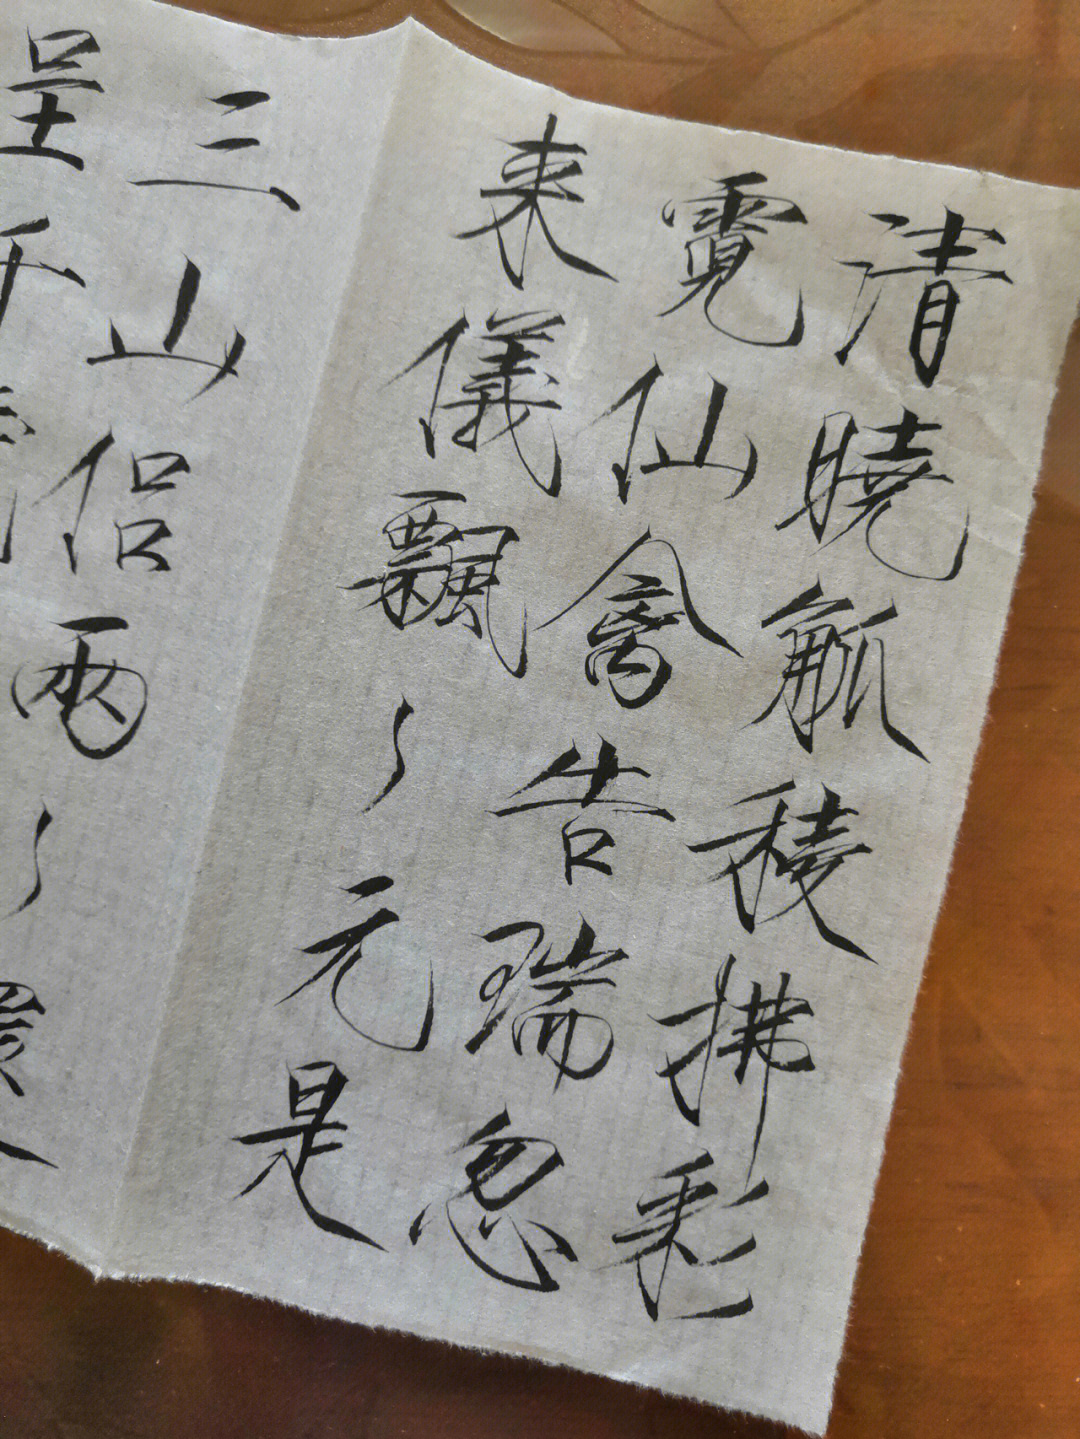 清曉觚稜拂彩
霓仙禽告瑞忽
来儀飄〻元是
三山侣兩〻還
呈千